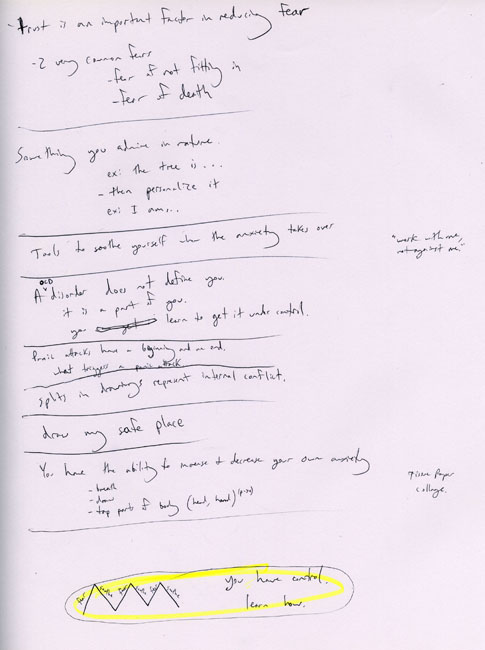 -trust is an important factor in reducing fear
-2 very common fears
-fear of not fitting in
-fear of death
Something you admire in nature.
ex: the tree is...
- then personalize it
ex: I am...
Tools to soothe yourself when the anxiety takes over
"work with me,
not against me."
OCD
A disorder does not define you.
it is a part of you.
you learn to get it under control.
Panic attacks have a beginning and an end.
what triggers a panic attack
splits in drawings represent internal conflict.
draw my safe place
You have the ability to increase & decrease your own anxiety
- breath
- draw
- tap parts of body (head, hand)
tissue paper
collage.
you have control.
learn how.